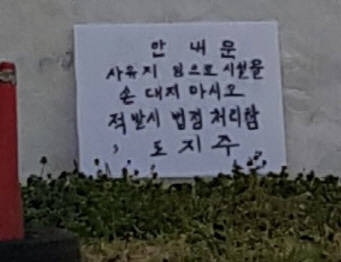 안내문
사유지 임으로 시설물
손 대지 마시오
적발시 법점 처리함
토지주